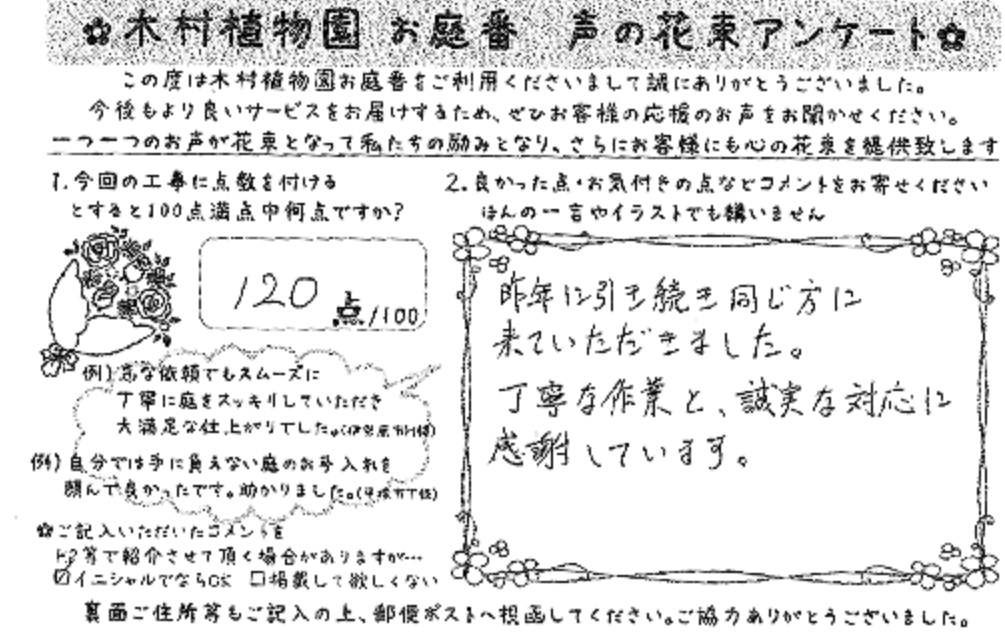 ✿木村植物園 お庭番 声の花束アンケート✿
この度は木村植物園お庭番をご利用くださいまして誠にありがとうございました。
今後もより良いサービスをお届けするため、ぜひお客様の応援のお声をお聞かせください。
一つ一つのお声が花束となって私たちの励みとなり、さらにお客様にも心の花束を提供致します
1.今回の工事に点数を付ける
とすると100点満点中何点ですか？
120点/100
例）急な依頼でもスムーズに
丁寧に庭をスッキリしていただき
大満足な仕上がりでした。(伊勢原市H様)
例）自分では手に負えない庭のお手入れを
頼んで良かったです。助かりました。(平塚市T様)
✿ご記入いただいたコメントを
HP等で紹介させて頂く場合がありますが…
☑イニシャルでならOK □掲載して欲しくない
2.良かった点・お気付きの点などコメントをお寄せください
ほんの一言やイラストでも構いません
昨年に引き続き同じ方に
来ていただきました。
丁寧な作業と、誠実な対応に
感謝しています。
裏面ご住所等もご記入の上、郵便ポストへ投函してください。ご協力ありがとうございました。